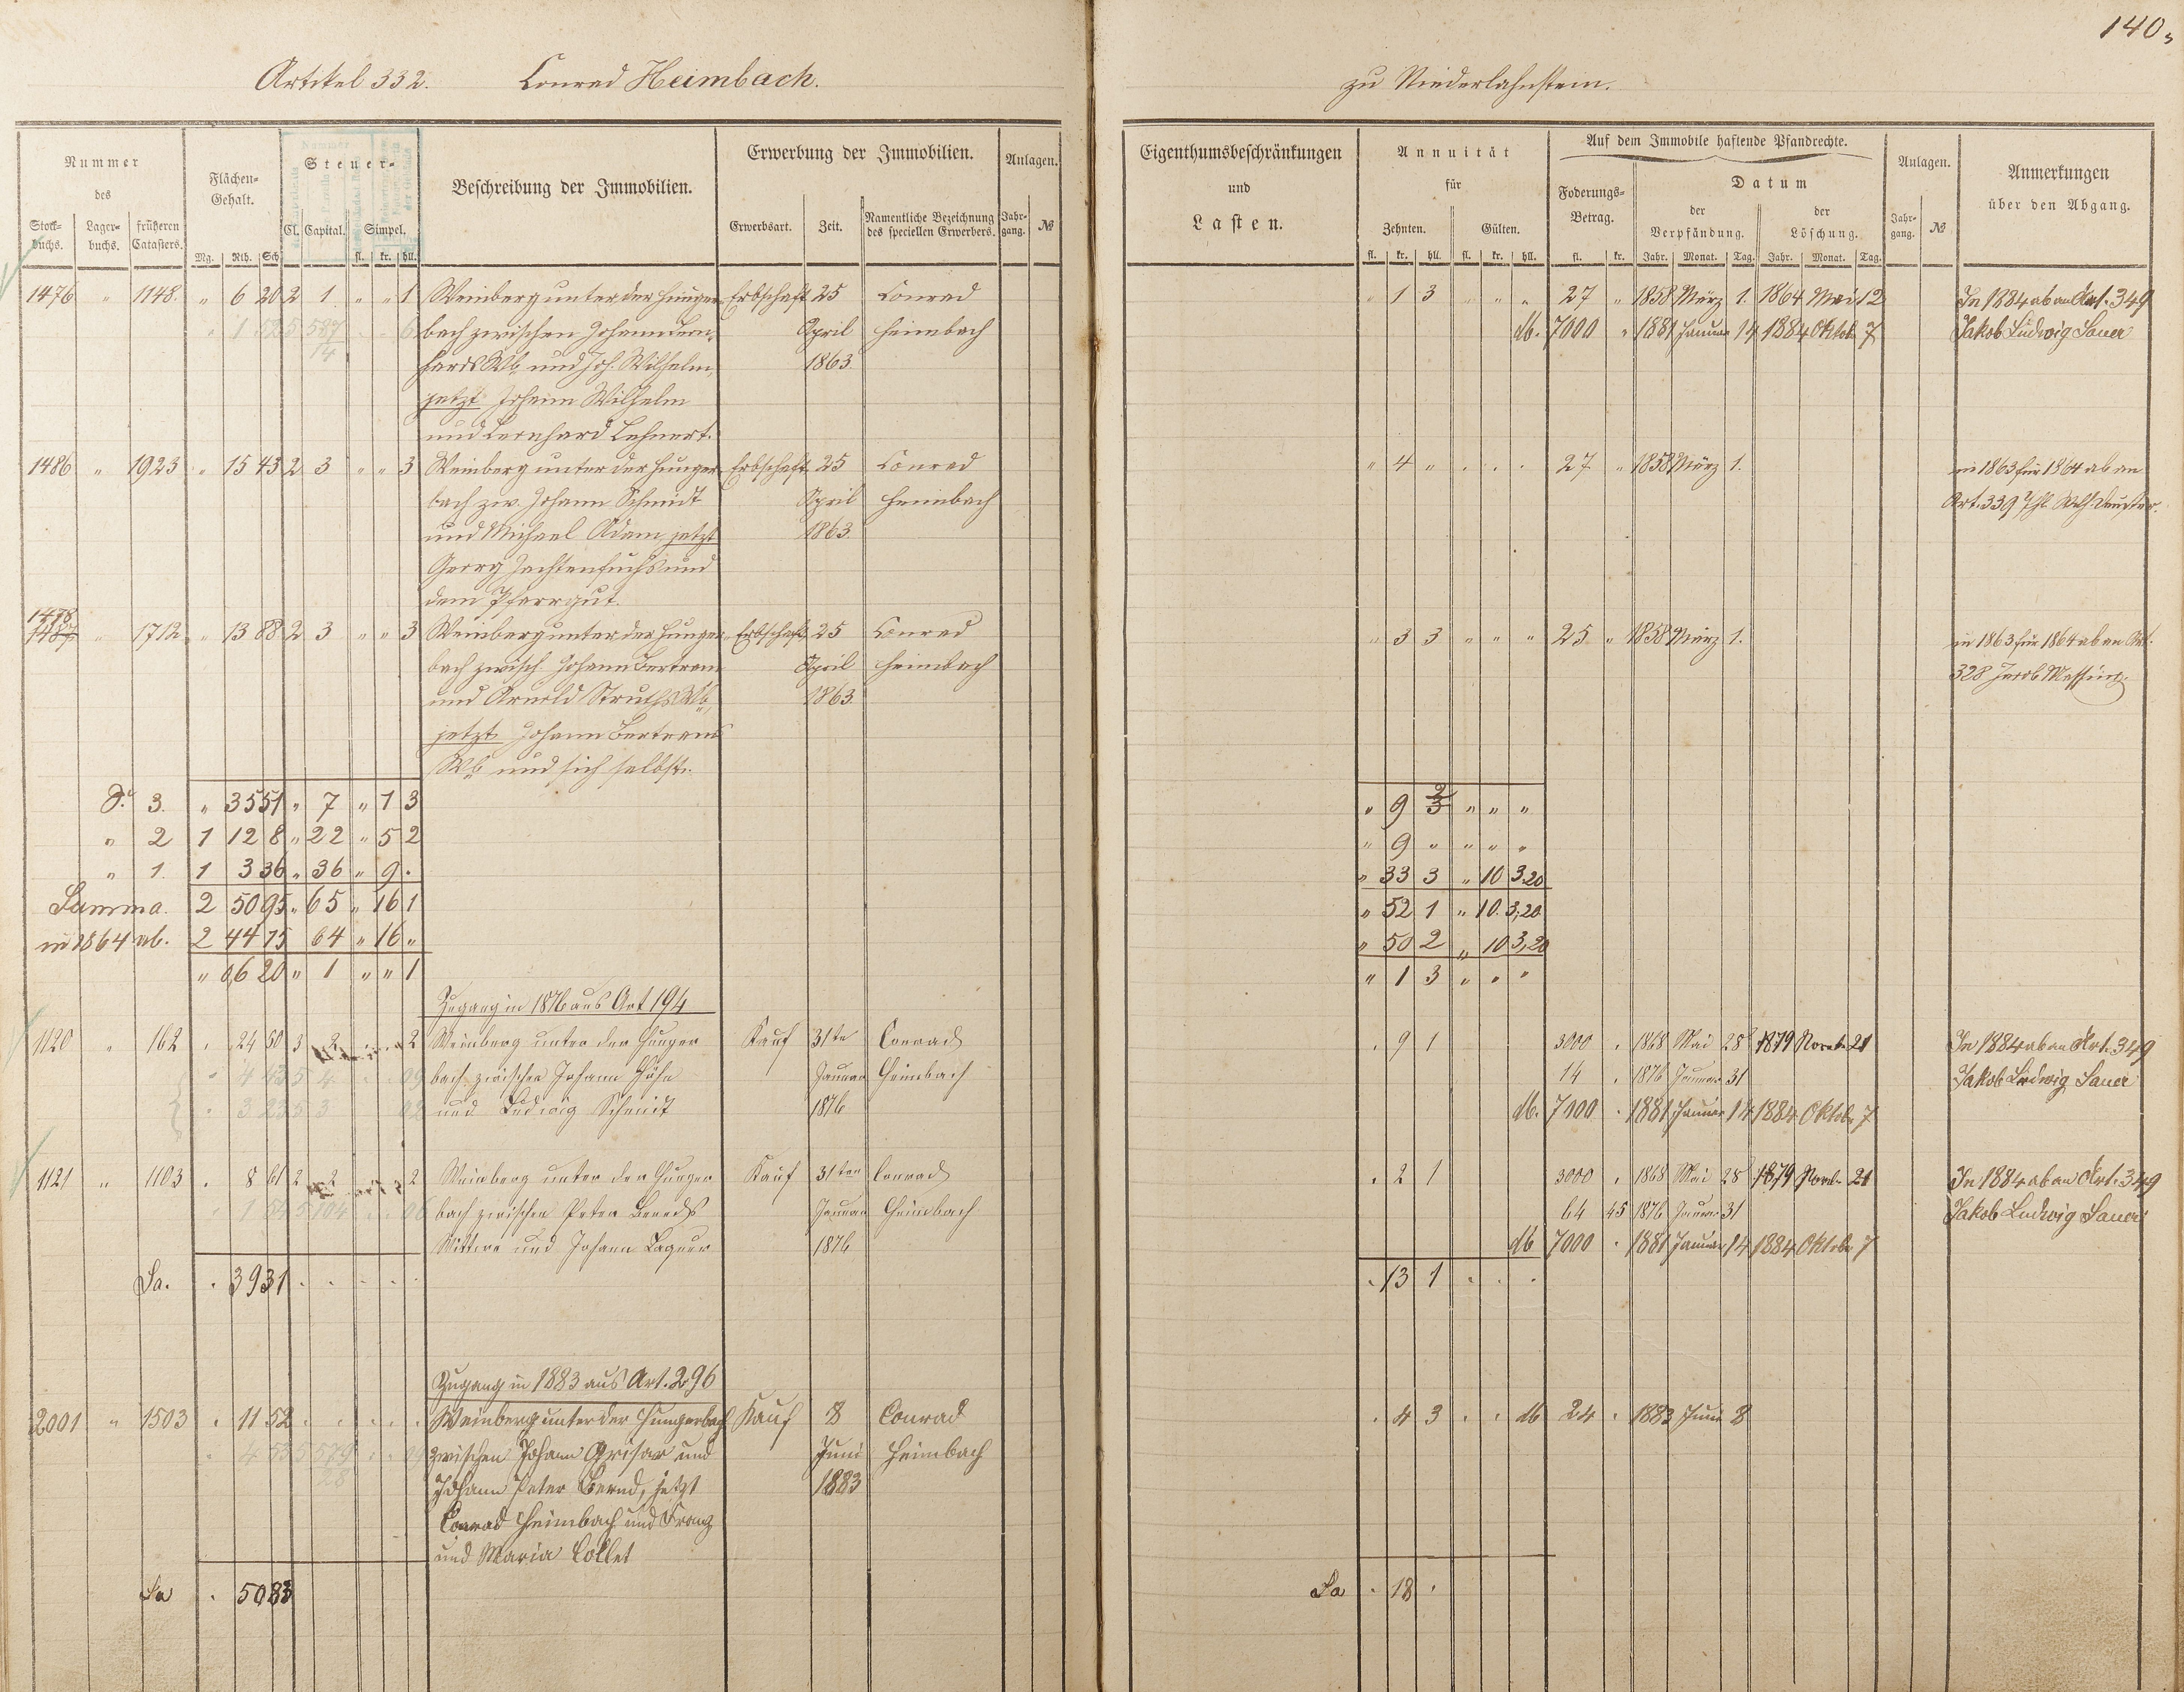 140.
Artikel 332. Conrad Heimbach.
zu Niederlahnstein.
Nummer
des
Stock-
buchs.
Lager-
buchs.
früheren
Catasters.
Flächen-
Gehalt.
Mg. Rth. Sch
Steuer-
Cl. Capital. Simpel.
fl. kr. hll.
Beschreibung der Immobilien.
Erwerbung der Immobilien.
Erwerbsart. Zeit. Namentliche Bezeichnung
des speciellen Erwerbers.
Anlagen.
Jahr-
gang. №
Eigenthumsbeschränkungen
und
Lasten.
Annuität
für
Zehnten. Gülten.
fl. kr. hll. fl. kr. hll.
Auf dem Immobile haftende Pfandrechte.
Foderungs-
Betrag.
fl. kr.
Datum
der
Verpfändung.
der
Löschung.
Jahr. Monat. Tag. Jahr. Monat. Tag.
Anlagen.
Jahr-
gang. №
Anmerkungen
über den Abgang.
1476 " 1148. " 6 20 2 1 " " 1 Weinberg unter der Hunger- Erbschaft 25 Conrad " 1 3 " " " 27 " 1858 März 1. 1864 Mai 12 In 1884 ab an Art. 349
bach zwischen Johann Bern- April Heimbach db. 7000 " 1881 Januar 14 1884 Oktob. 7 Jakob Ludwig Sauer
hards Wb und Joh. Wilhelm, 1863.
jetzt Johann Wilhelm
und Bernhard Lehnert.
1486 " 1923 " 15 43 2 3 " " 3 Weinberg unter der Hunger- Erbschaft 25 Conrad " 4 " . . . 27 " 1858 März 1. in 1863 für 1864 ab an
bach zw. Johann Schmidt April Heimbach Art. 339
und Michael Adam jetzt 1863.
Georg Jachtenfuchs und
dem Pfarrgut.
1478
1487 " 1712 " 13 88 2 3 " " 3 Weinberg unter der Hunger- Erbschaft 25 Conrad " 3 3 " " " 25 " 1858 März 1. in 1863 für 1864 ab an Art.
bach zwisch. Johann Bertram April Heimbach 328 Jacob Messing.
und Arnold Struths Wb, 1863.
jetzt Johann Bertrams
Wb und sich selbst.
S. 3. " 35 51 " 7 " 1 3 " 9 2 3 " " "
" 2 1 12 8 " 22 " 5 2 " 9 " " " "
" 1. 1 3 36 " 36 " 9 . " 33 3 " 10 3.20
Summa. 2 50 95 " 65 " 16 1 " 52 1 " 10. 3,20.
in 1864 ab. 2 44 75 64 " 16 " " 50 2 " 10 3,20
" 06 20 " 1 " " 1 " 1 3 " " "
Zugang in 1876 aus Art 194
1120 " 162 . 24 50 3 2 2 Weinberg unter der Hunger Kauf 31te Conrad . 9 1 3000 . 1868 Mai 28 1879 Novb. 21 In 1884 ab an Art. 349
bach zwischen Johann Januar Heimbach 14 . 1876 Januar 31 Jakob Ludwig Sauer
und Ludwig Schmidt 1876 db. 7000 . 1881 Januar 14 1884 Oktob. 7
1121 " 1103 . 8 61 2 2 2 Weinberg unter der Hunger Kauf 31ten Conrad . 2 1 3000 . 1868 Mai 28 1879 Novb. 21 In 1884 ab an Art. 349
bach zwischen Peter Bernds Januar Heimbach 64 45 1876 Januar 31 Jakob Ludwig Sauer
Wittwe und Johann 1876 db 7000 . 1881 Januar 14 1884 Oktob. 7
Sa. . 39 31 . . . . . . 13 1 . . .
Zugang in 1883 aus Art. 296
2001 " 1503 . 11 52 . . . . . Weinberg unter der Hungerbach Kauf 8 Conrad . 4 3 . . db 24 . 1883 Juni 8
zwischen Johann Grisar und Juni Heimbach
Johann Peter Bernd, jetzt 1883
Conrad Heimbach und Franz
und Maria Collet
Sa . 50 83 Sa . 18 .